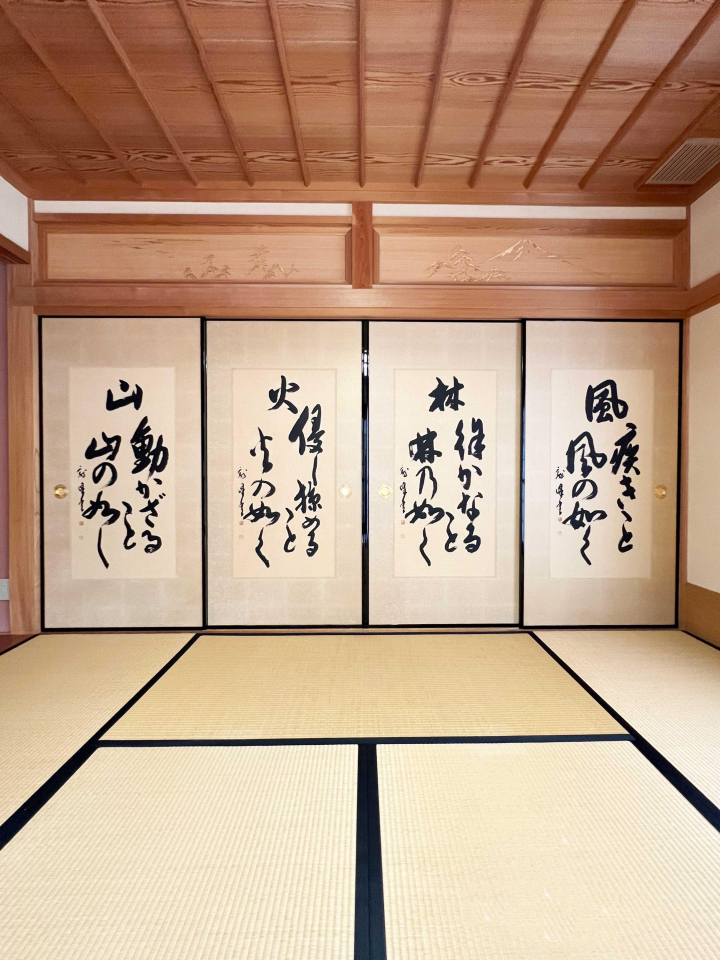 風
疾きこと
風の如く
林
徐かなること
林乃如く
火
侵し掠めること
火の如く
山
動かざること
山の如し